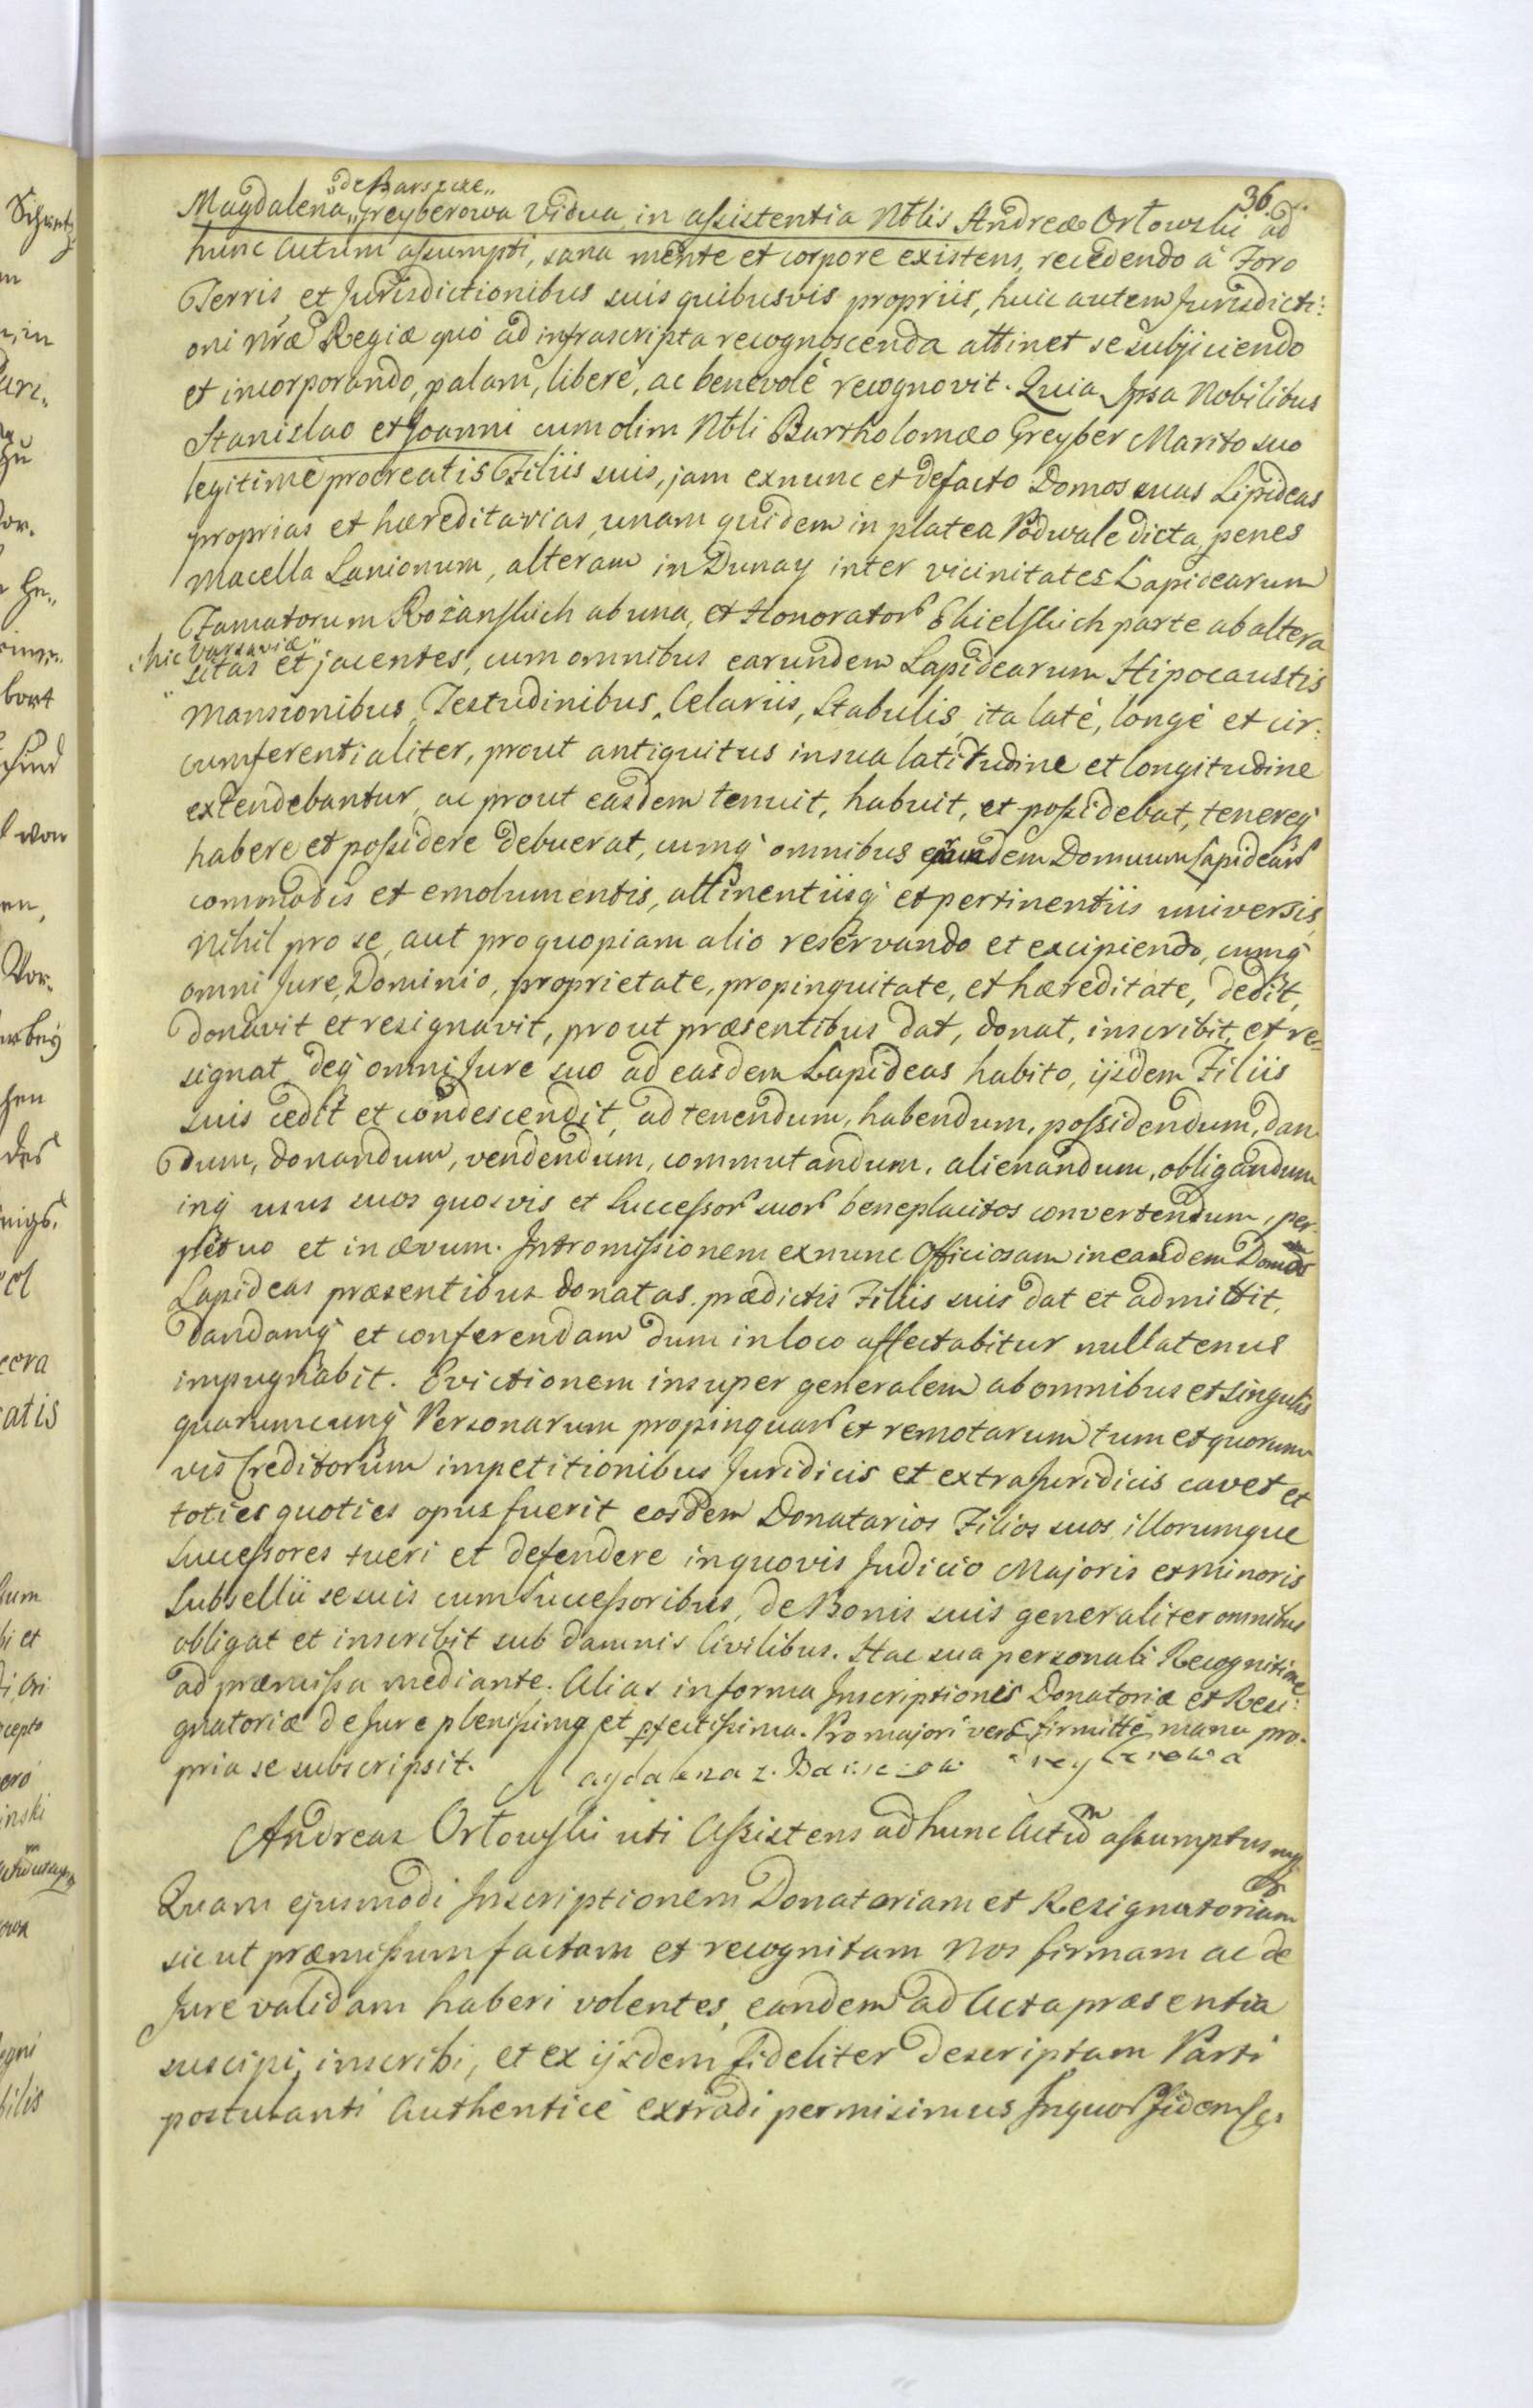 36
"de Barszcze"
Magdalena Greyberowa Vidua, in assistentia Nblis Andreæ Orłowski ad
hunc Actum assumpti, sana mente et corpore existens, recedendo à Foro
Terris et Jurisdictionibus suis quibusvis propriis, huic autem Jurisdicti:
oni nræ Regiæ quò ad infrascripta recognoscenda attinet se subjiciendo
et incorporando, palam, liberè, ac benevolè recognovit. Quia Ipsa Nobilibus
Stanislao et Joanni cum olim Nbli Bartholomæo Greyber Marito suo
legitimè procreatis Filiis suis, jam exnunc et defacto Domos suas Lipideas
proprias et hæreditarias, unam quidem in platea Podwale dicta, penes
Macella Lanionum, alteram in Dunay inter vicinitates Lapidearum
Famatorum Rożanskich ab una, et Honorator Skielskich parte ab altera
"hic Varsaviæ"
sitas et jacentes, cum omnibus earundem Lapidearum Hipocaustis
Mansionibus, Testudinibus, Celariis, Stabulis, ita latè, longè et cir:
cumferentialiter, prout antiquitus in sua latitudine et longitudine
extendebantur, ac prout easdem tenuit, habuit, et possidebat, tenereq
habere et possidere debuerat, cumq omnibus earundem Domuum Lapidear
commodis et emolumentis, attinentiisq et pertinentiis universis,
Nihil pro se, aut pro quopiam alio reservando et excipiendo, cumq
omni Jure, Dominio, proprietate, propinquitate, et hæreditate, dedit,
donavit et resignavit, prout præsentibus dat, donat, inscribit, et re=
signat, deq omni Jure suo ad easdem Lapideas habito, ijsdem Filiis
suis cedit et condescendit, ad tenendum, habendum, possidendum, dan
dum, donandum, vendendum, commutandum, alienandum, obligandum
inq usus suos quosvis et Successor suor beneplacitos convertendum, per
petuo et in ævum. Intromissionem exnunc Officiosam in easdem Domos
Lapideas præsentibus donatas, prædictis Filiis suis dat et admittit,
dandamq et conferendam dum in loco affectabitur nullatenus
impugnabit. Evictionem insuper generalem ab omnibus et singulis
quarumcunq Personarum propinquar et remotarum tum et quorum
vis Creditorum impetitionibus Juridicis et extraJuridicis cavet et
toties quoties opus fuerit eosdem Donatarios Filios suos, illorumque
Successores tueri et defendere in quovis Judicio Majoris et Minoris
Subsellii se suis cum Successoribus, de Bonis suis generaliter omnibus
obligat et inscribit sub damnis Civilibus. Hac sua personali Recognitione
ad præmissa mediante. Alias in forma Inscriptionis Donatoriæ et Resi:
gnatoriæ de Jure plenissima et pfectissima. Pro majori verò firmitte manu pro.
pria se subscripsit. Magdalena z. Greyberowa
Andreas Orłowski uti Assistens ad hunc Actum assumptus mpp
Quam ejusmodi Inscriptionem Donatoriam et Resignatoriam
sic ut præmissum factam et recognitam Nos firmam ac de
Jure validam haberi volentes, eandem ad Acta præsentia
suscipi, inscribi, et ex ijsdem fideliter descriptam Parti
postulanti Authenticè extradi permisimus In quor fidem